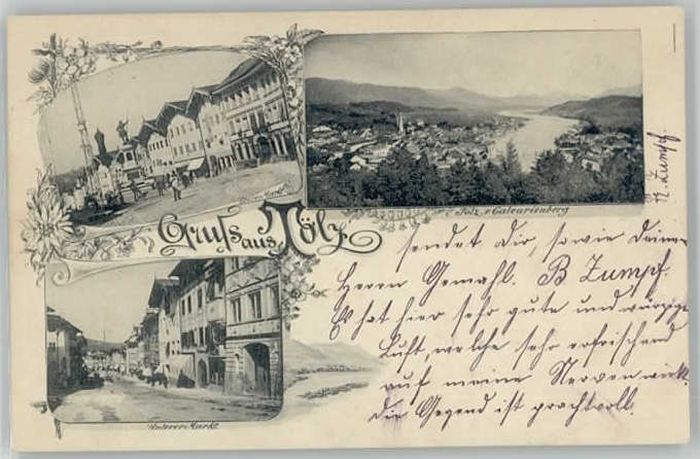 Oberer Markt
Tölz v. Calvarienberg
Gruss aus Tölz
Unterer Markt
sendet Dir, sowie Deinem
Herrn Gemahl. B Zumpf.
Es hat hier sehr gute und würzige
Luft, welche sehr erfrischend
auf meine Nerven wirkt.
Die Gegend ist prachtvoll.
Zumpf